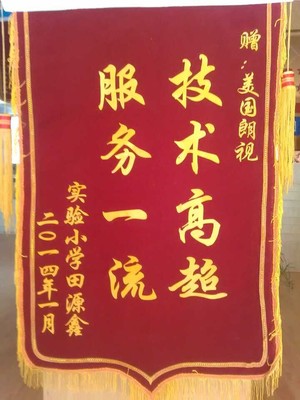 赠：美国朗视
技术高超
服务一流
实验小学田源鑫
二〇一四年一月